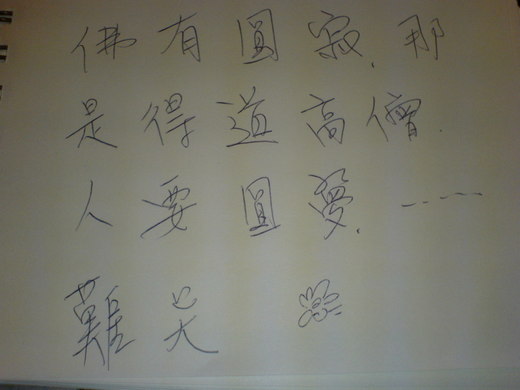 佛有圓寂,那
是得道高僧.
人要圓夢.……
難